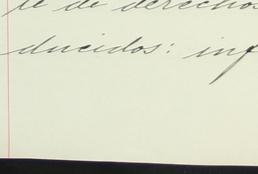 te de derechos
ducidos: inf